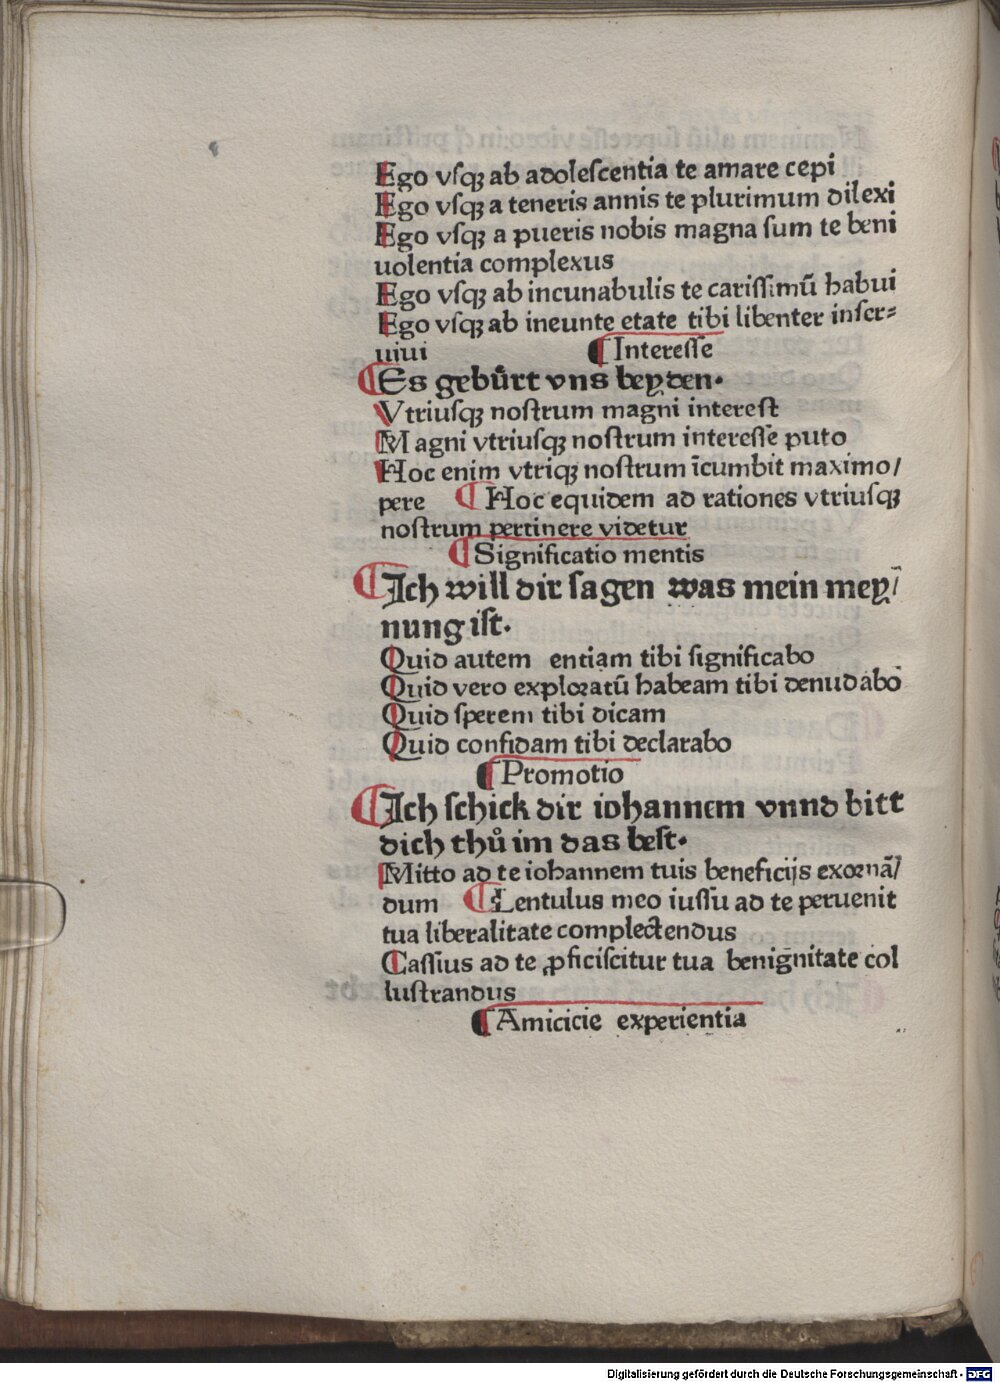 Ego vſqꝫ ab adoleſcentia te amare cepi
Ego vſqꝫ a teneris annis te plurimum dilexi
Ego vſqꝫ a pueris nobis magna ſum te beni
uolentia complexus
Ego vſqꝫ ab incunabulis te cariſſimū habui
Ego vſqꝫ ab ineunte etate tibi libenter inſer⸗
uiui ¶ Intereſſe
¶ Es gebůrt vns beyden.
Vtriuſqꝫ noſtrum magni intereſt
Magni vtriuſqꝫ noſtrum intereſſe puto
Hoc enim vtriqꝫ noſtrum īcumbit maximo/
pere ¶ Hoc equidem ad rationes vtriuſqꝫ
noſtrum pertinere videtur
¶ Significatio mentis
¶ Ich will dir ſagen was mein mey/
nung iſt.
Quid autem entiam tibi ſignificabo
Quid vero exploratū habeam tibi denudabo
Quid ſperem tibi dicam
Quid confidam tibi declarabo
¶ Promotio
¶ Ich ſchick dir iohannem vnnd bitt
dich thů im das beſt.
Mitto ad te iohannem tuis beneficijs exornā/
dum ¶ Lentulus meo iuſſu ad te peruenit
tua liberalitate complectendus
Caſſius ad te ꝓficiſcitur tua benignitate col
luſtrandus
¶ Amicicie experientia
Digitalisierung gefördert durch die Deutsche Forschungsgemeinschaft - DFG